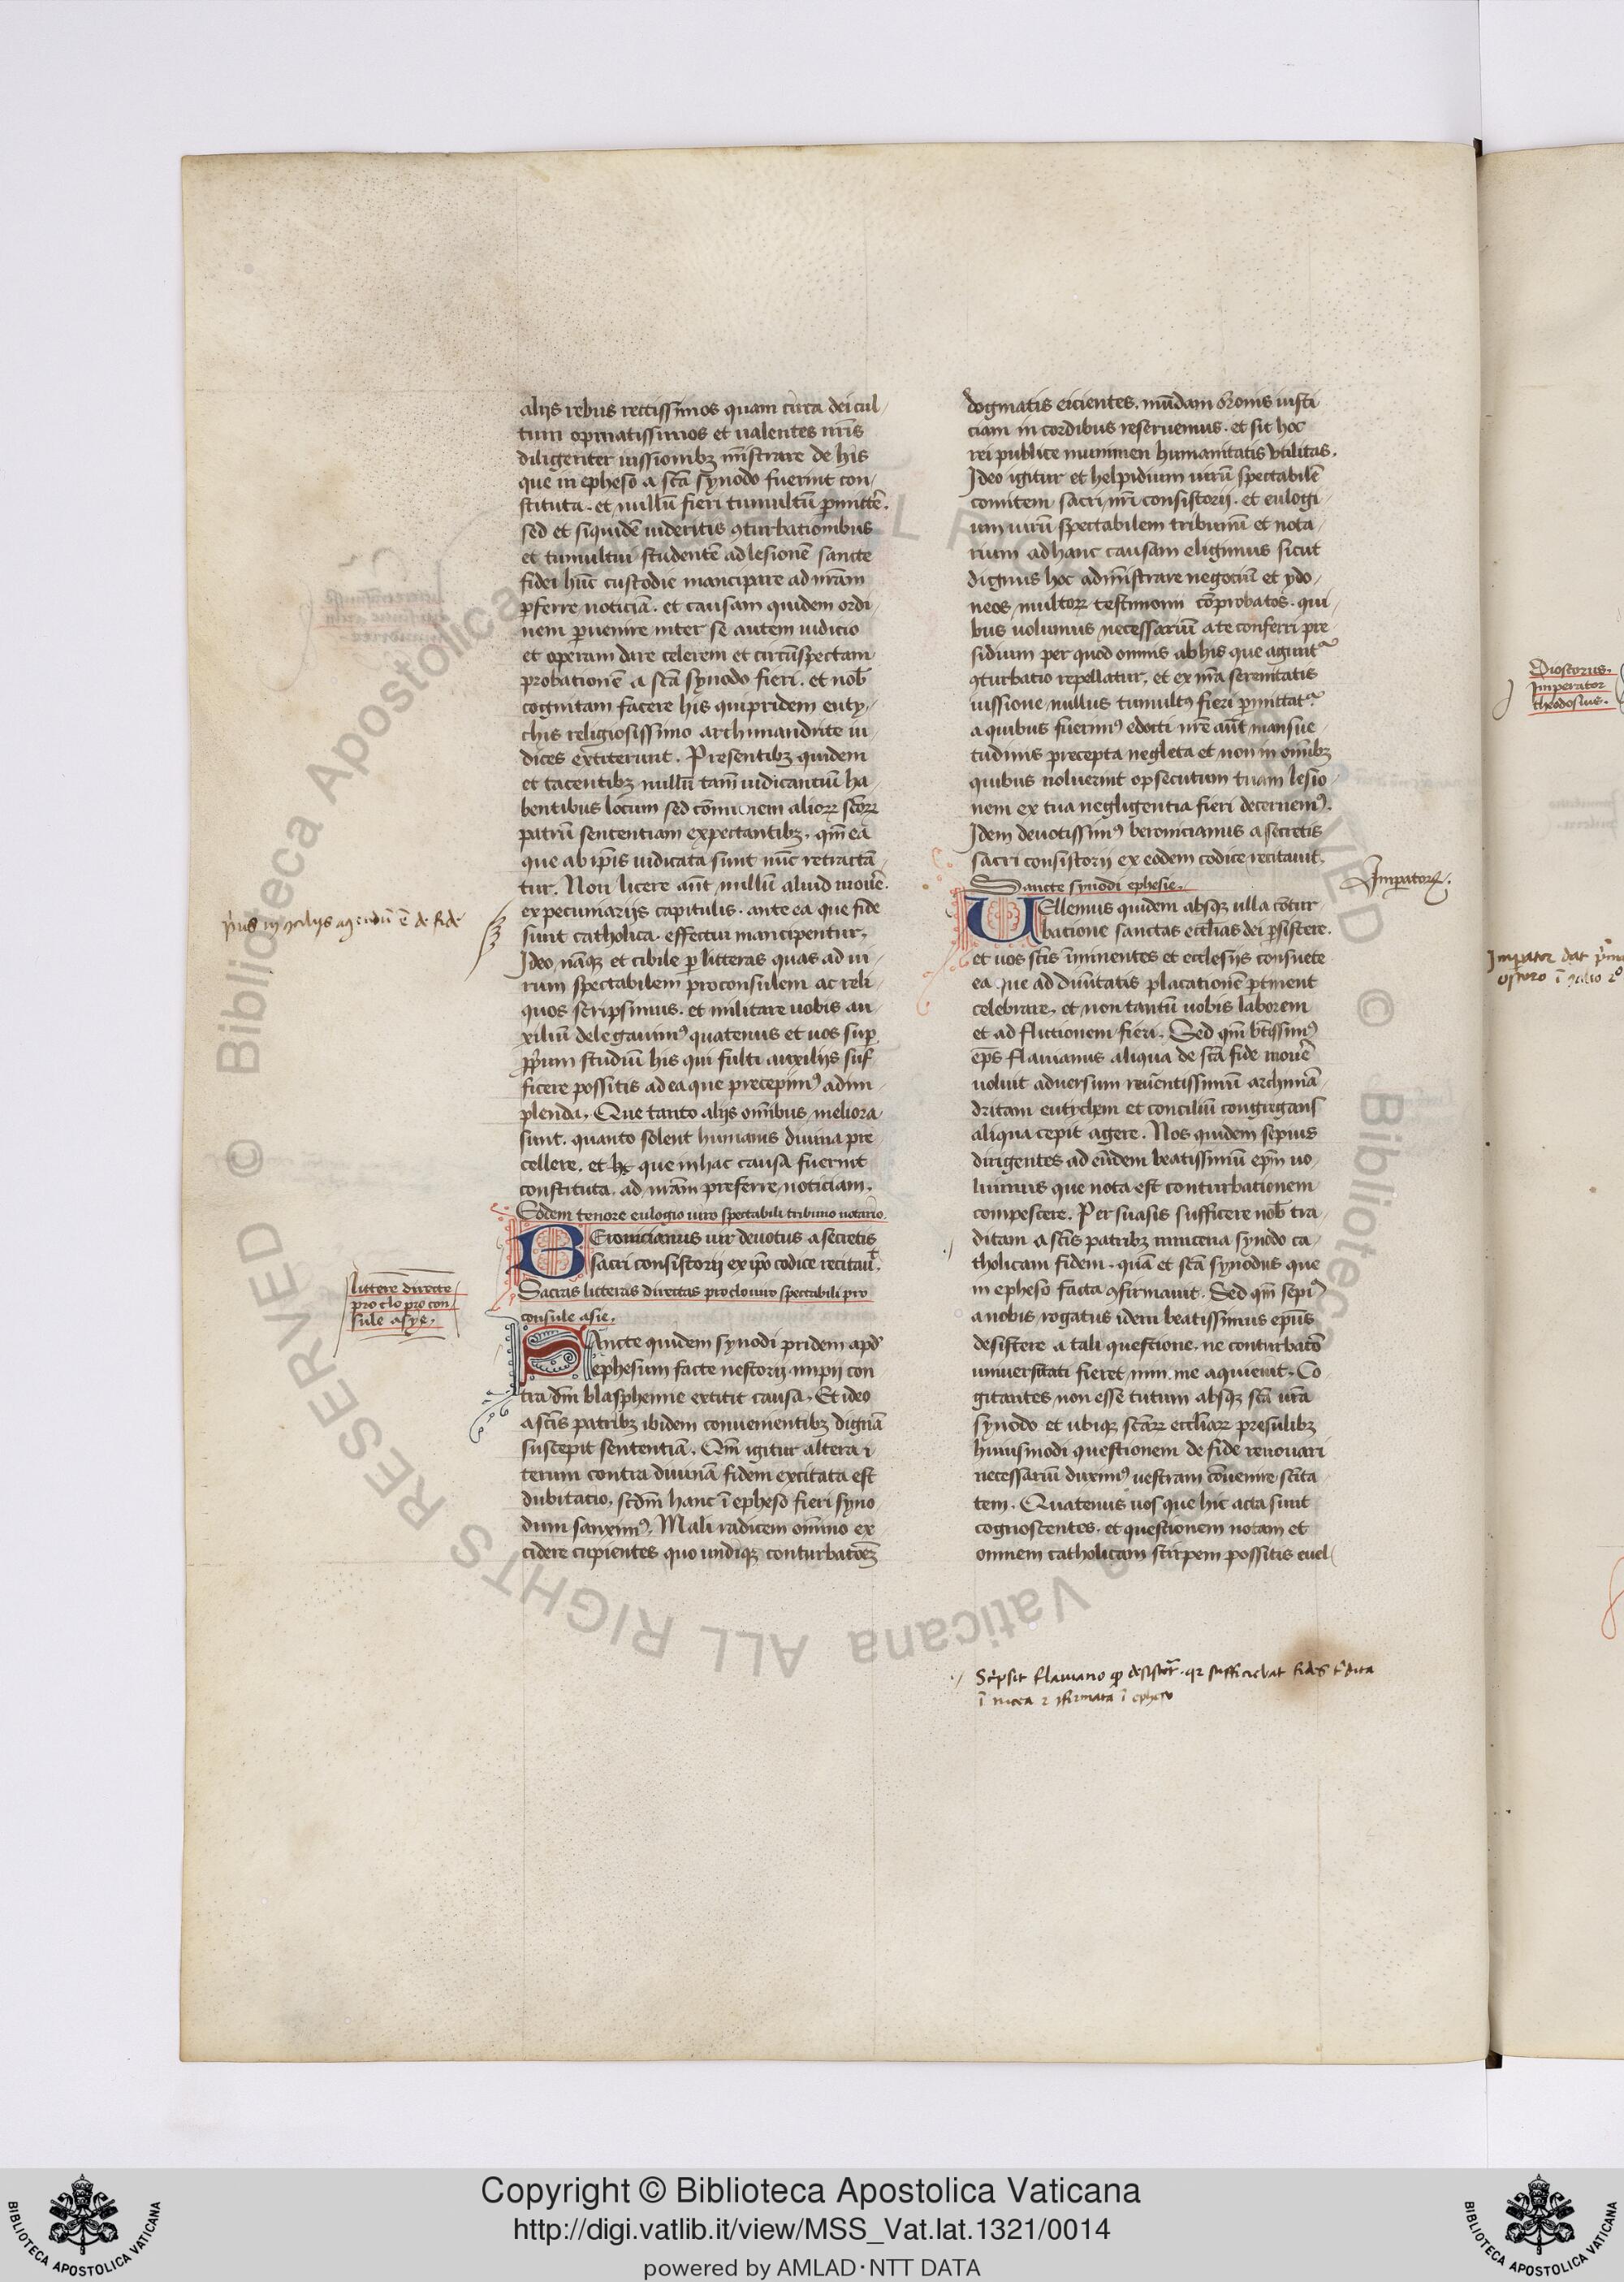 alijs rebus rectissimos quam circa dei cul-
tum opinatissimos et ualentes nr̄is
diligenter iussionibꝫ mīstrare de his
que in epheso a sc̄a synodo fuerint con-
stituta. et nullū fieri tumultū ꝑmittē.
sed et siquidē uideritis ꝯturbationibus
et tumultui studentē ad lesionē sancte
fidei hūc custodie mancipare ad nr̄am
ꝑferre noticiā. et causam quidem ordi-
nem ꝑuenire inter se autem iudicio
et operam dare celerem et circūspectam
probationē a sc̄a synodo fieri. et nob̄
cognitam facere his qui pridem euty-
chis religiosissimo archimandrite iu-
dices extiterunt. Presentibꝫ quidem
et tacentibꝫ nullū tam̄ iudicantiū ha-
bentibus locum sed com̄unem alioꝝ sc̄oꝝ
patrū sententiam expectantibꝫ. qm̄ ea
que ab ip̄is iudicata sunt nūc retractā-
tur. Non licere aūt nullū aliud mouē.
ex pecuniarijs capitulis. ante ea que fide
sunt catholica. effectui mancipentur.
Ideo nāqꝫ et cibile ꝑ litteras quas ad ui-
rum spectabilem proconsulem ac reli-
quos scripsimus. et militare uobis au-
xiliū delegauimꝰ quatenus et uos suꝑ
ꝓprium studiū his qui fulti auxilijs suf-
ficere possitis ad ea que precepimꝰ adim-
plenda. Que tanto alijs om̄ibus meliora
sunt. quanto solent humanis diuina pre-
cellere. et hec que in hac causa fuerint
constituta. ad nr̄am preferre noticiam.
Eodem tenore eulogio uiro spectabili tribuno notario
Beronicianus uir deuotus a secretis
sacri consistorij ex ip̄o codice recitauit.
Sacras litteras directas proclo uiro spectabili pro
consule asie.
Sancte quidem synodi pridem apd'
ephesum facte nestorij impij con-
tra dm̄ blasphemie extitit causa. Et ideo
a sc̄is patribꝫ ibidem conuenientibꝫ dignā
suscepit sententiā. Qm̄ igitur altera i-
terum contra diuinā fidem excitata est
dubitatio. sc̄dm̄ hanc ī epheso fieri syno-
dum sanximꝰ. Mali radicem om̄ino ex-
cidere cupientes quo undiqꝫ conturbatōeꝫ
p̄us in ꝯcilijs agendū ē de fide
littere directe
proclo procon-
sule asye.
dogmatis eicientes. mūdam or̄onis iusti-
ciam in cordibus reseruemus. et sit hoc
rei publice munimen humanitatis vtilitas.
Ideo igitur et helpidium uirū spectabilē
comitem sacri nr̄i consistorij. et eulogi-
um uirū spectabilem tribunū et nota-
rium ad hanc causam eligimus sicut
dignus hoc admīstrare negotiū et ydo-
neos multoꝝ testimonii cōprobatos. qui-
bus uolumus necessariū a te conferri pre-
sidium per quod omnis ab his que agunt᷑
ꝯturbatio repellatur. et ex nr̄a serenitatis
iussione nullus tumultꝰ fieri ꝑmittat᷑.
a quibus fuerimꝰ edocti nr̄e aūt mansue-
tudinis precepta neglcta et non in om̄ibꝫ
quibus uoluerint opsecutum tuam lesio-
nem ex tua negligentia fieri decernemꝰ.
Idem deuotissimꝰ beronicianus a secretis
sacri consistorij ex eodem codice recitauit.
Sancte synodi ephesie.
Uellemus quidem absqꝫ ulla cōtur-
batione sanctas eccl̄ias dei ꝑsistere.
et uos sc̄is īminentes et ecclesijs consuete
ea que ad diuītatis placationē ꝑtinent
celebrare. et non tantū uobis laborem
et ad flictionem fieri. Sed qm̄ bt̄issimꝰ
ep̄s flauianus aliqua de sc̄a fide mouē
uoluit aduersum reuēentissimū archimā-
dritam eutychem et conciliū congregans
aliqua cepit agere. Nos quidem sepius
dirigentes ad eūdem beatissimū ep̄m uo-
luimus que nota est conturbationem
compescere. Per suasis sufficere nob̄ tra-
ditam a sc̄is patribꝫ nincena synodo ca-
tholicam fidem. quā et sc̄a synodus que
in epheso facta ꝯfirmauit. Sed qm̄ sepiꝰ
a nobis rogatus idem beatissimus ep̄us
desistere a tali questione. ne conturbatō
uniuersitati fieret minime aquieuit. Co-
gitantes non esse tutum absqꝫ sc̄a ur̄a
synodo et ubiqꝫ sc̄aꝝ eccl̄iaꝝ presulibꝫ
huiusmodi questionem de fide renouari
necessariū duximꝰ uestram cōuenire sc̄ita-
tem. Quatenus uos que hic acta sunt
cognoscentes. et questionem motam et
omnem catholicam stirpem possitis euel-
Imperatorꝭ.
Scripsit flauiano ꝙ desistet᷑. qꝛ sufficiebat fides tͥdita
ī nicea ⁊ ꝯfirmata ī epheso
Dioscorus.
Imperator
theodosius.
Copyright © Biblioteca Apostolica Vaticana
http://digi.vatlib.it/view/MSS_Vat.lat.1321/0014
powered by AMLAD·NTT DATA
BIBLIOTECA APOSTOLICA VATICANA
BIBLIOTECA APOSTOLICA VATICANA
© Biblioteca Apostolica Vaticana ALL RIGHTS RESERVED